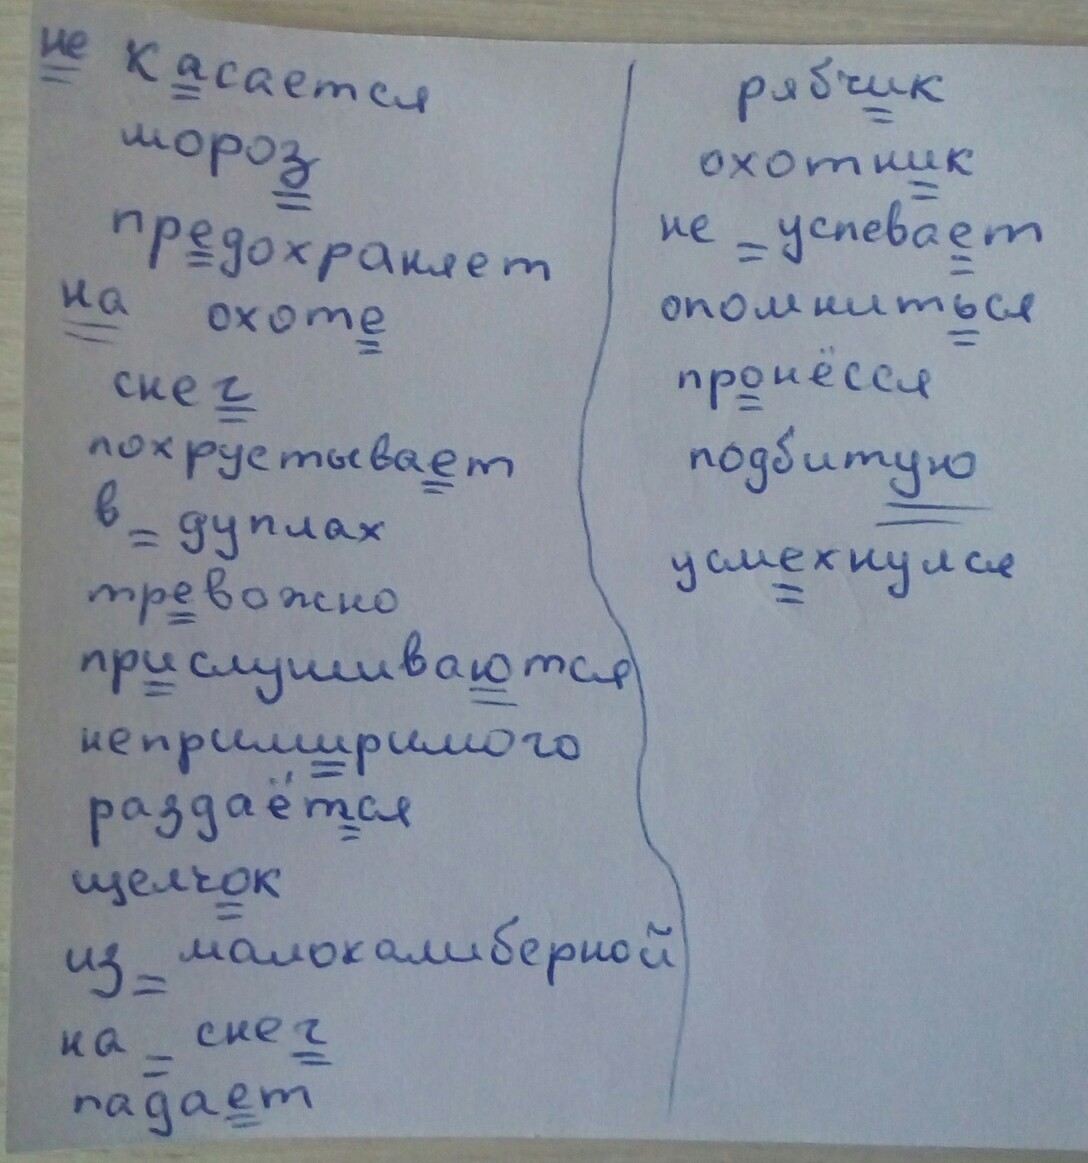 не касается
мороз
предохраняет
на охоте
снег
похрустывает
в = дуплах
тревожно
прислушиваются
непримиримого
раздаётся
щелчок
из = малокалиберной
на = снег
падает
рябчик
охотник
не = успевает
опомниться
пронёсся
подбитую
усмехнулся